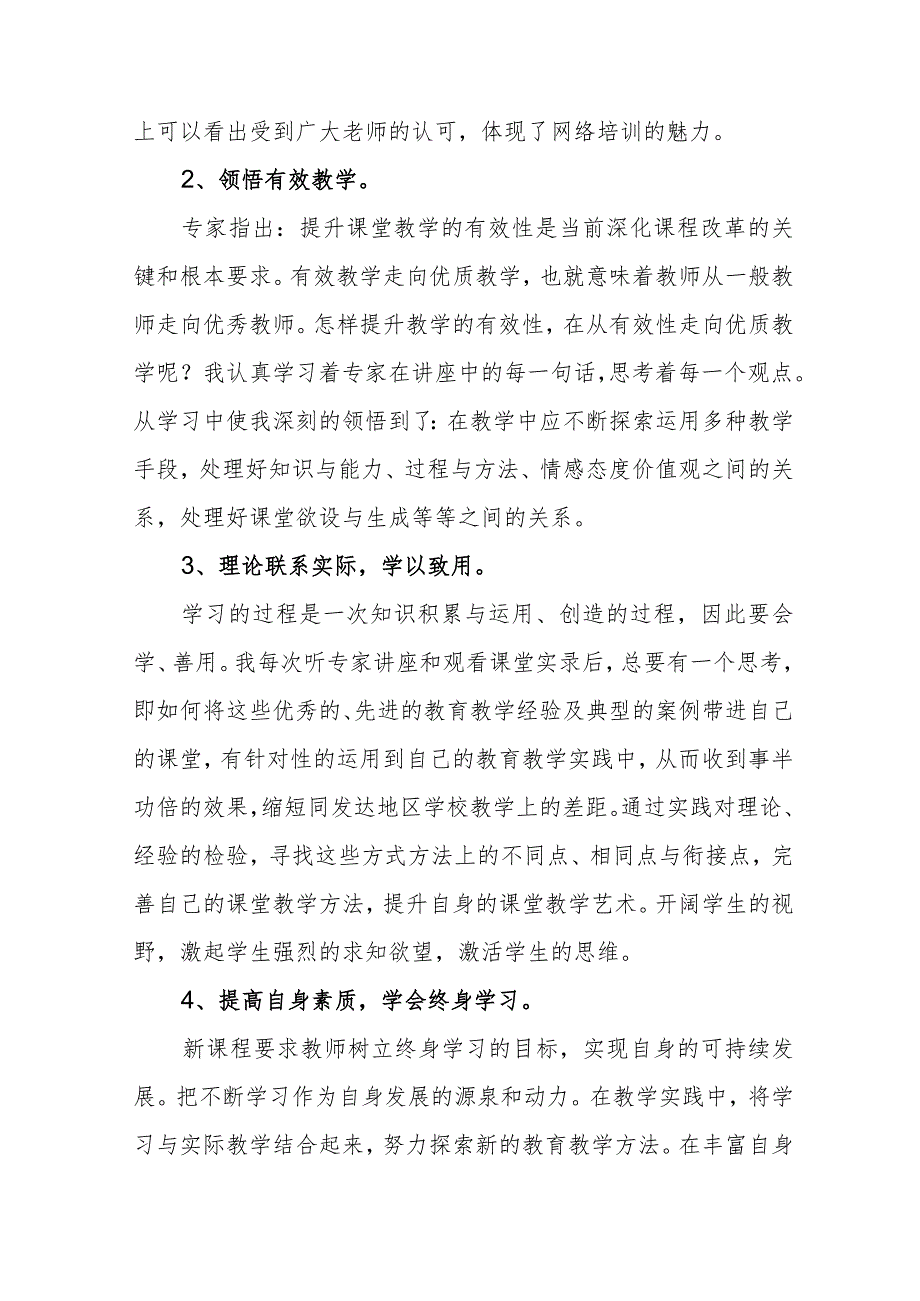 上可以看出受到广大老师的认可，体现了网络培训的魅力。
2、领悟有效教学。
专家指出：提升课堂教学的有效性是当前深化课程改革的关
键和根本要求。有效教学走向优质教学，也就意味着教师从一般教
师走向优秀教师。怎样提升教学的有效性，在从有效性走向优质教
学呢？我认真学习着专家在讲座中的每一句话，思考着每一个观点。
从学习中使我深刻的领悟到了：在教学中应不断探索运用多种教学
手段，处理好知识与能力、过程与方法、情感态度价值观之间的关
系，处理好课堂欲设与生成等等之间的关系。
3、理论联系实际，学以致用。
学习的过程是一次知识积累与运用、创造的过程，因此要会
学、善用。我每次听专家讲座和观看课堂实录后，总要有一个思考，
即如何将这些优秀的、先进的教育教学经验及典型的案例带进自己
的课堂，有针对性的运用到自己的教育教学实践中，从而收到事半
功倍的效果，缩短同发达地区学校教学上的差距。通过实践对理论、
经验的检验，寻找这些方式方法上的不同点、相同点与衔接点，完
善自己的课堂教学方法，提升自身的课堂教学艺术。开阔学生的视
野，激起学生强烈的求知欲望，激活学生的思维。
4、提高自身素质，学会终身学习。
新课程要求教师树立终身学习的目标，实现自身的可持续发
展。把不断学习作为自身发展的源泉和动力。在教学实践中，将学
习与实际教学结合起来，努力探索新的教育教学方法。在丰富自身